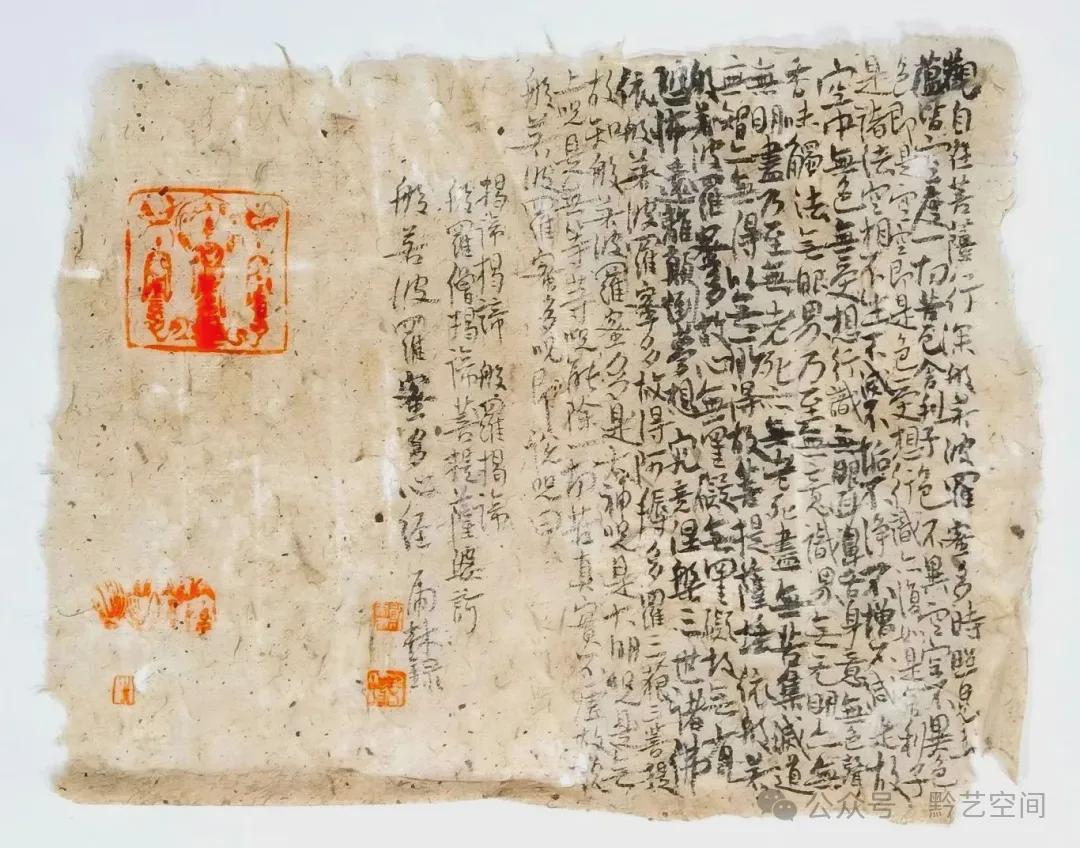 觀自在菩薩行深般若波羅蜜多時照見五
蘊皆空度一切苦厄舍利子色不異空空不異色
色即是空空即是色受想行識亦復如是舍利子
是諸法空相不生不滅不垢不淨不增不減是故
空中無色無受想行識無眼耳鼻舌身意無色聲
香味觸法無眼界乃至無意識界無无明亦無
無明盡乃至無老死亦無老死盡無苦集滅道
無智亦無得以無所得故菩提薩埵依般若
般若波羅蜜多故心無罣礙無罣礙故無有
恐怖遠離顛倒夢相究竟涅槃三世諸佛
依般若波羅蜜多故得阿耨多羅三藐三菩提
故知般若波羅蜜多是大神咒是大明咒是无
上咒是無等等咒能除一切苦真實不虛故說
般若波羅蜜多咒即說咒曰
揭諦揭諦般羅揭諦
般羅僧揭諦菩提薩婆訶
般若波羅蜜多心經 錄
公众号 黔艺空间